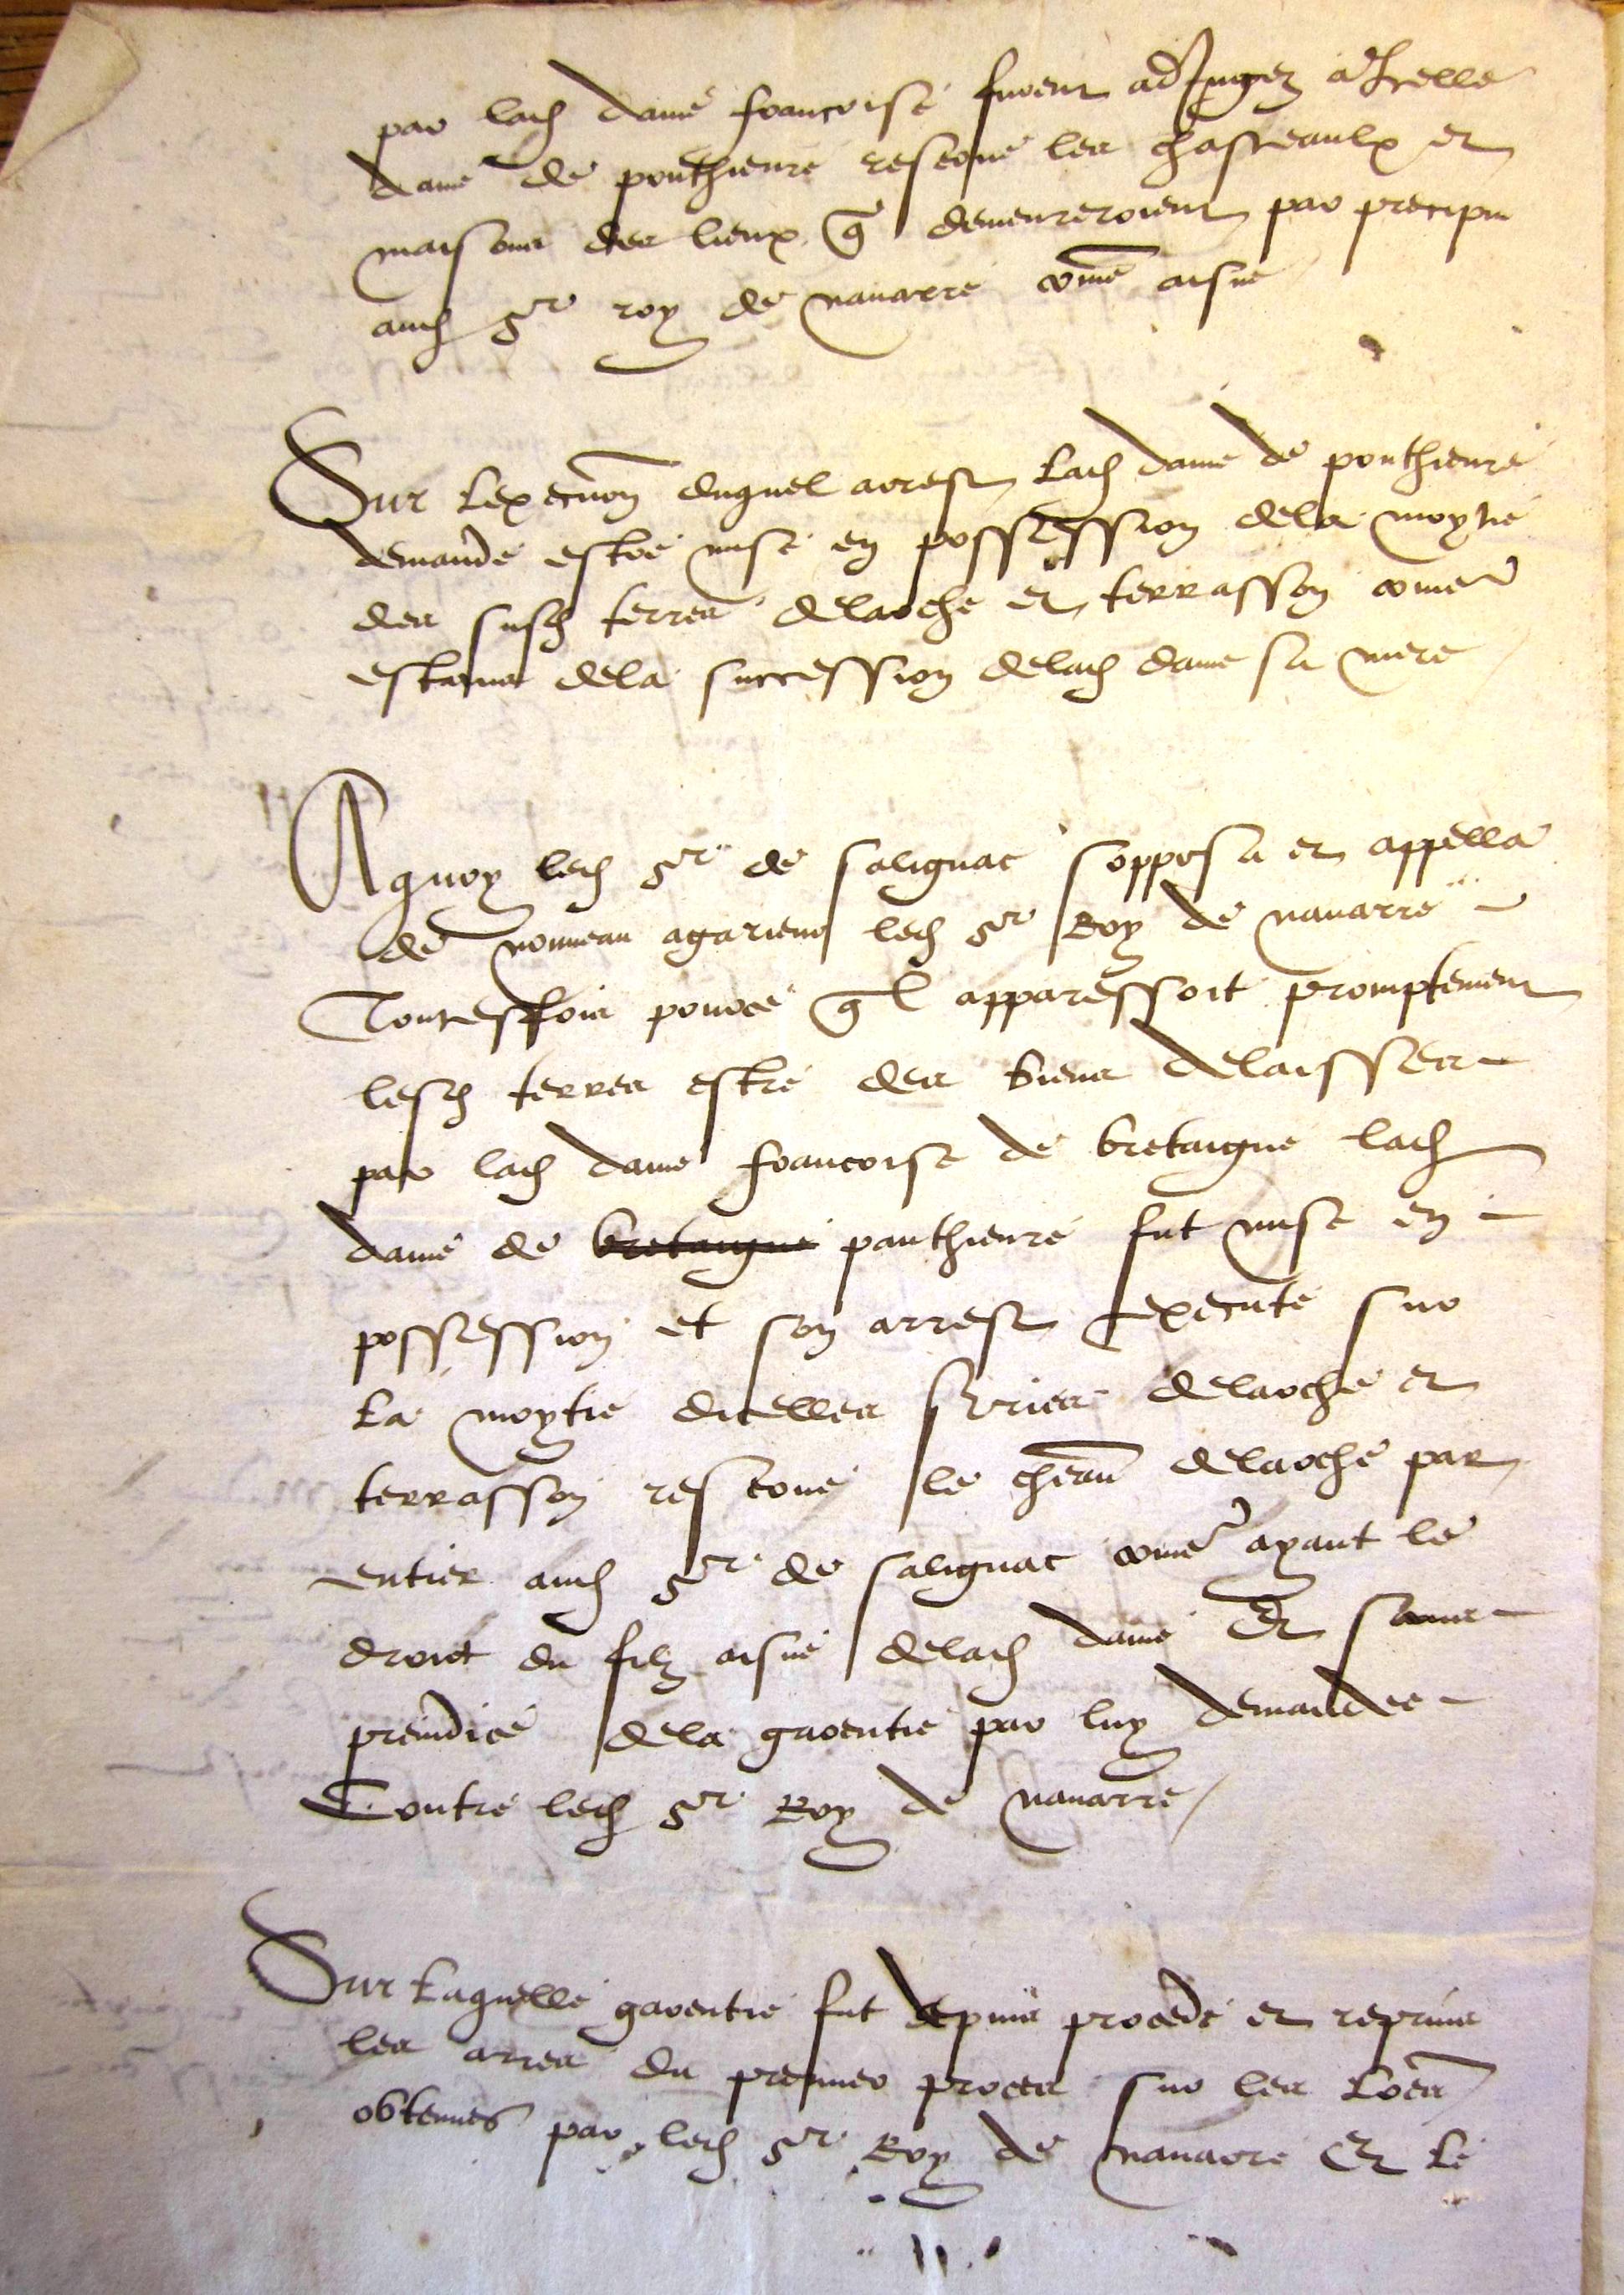 par lad dame francoise furent adjugez a Icelle
dame de ponthieure reserve les chasteaulx et
maisons des lieux q demeureroient par precipu
aud sr roy de navarre come aisne
Sur lexecuon duquel arrest lad dame de ponthieure
demande estre mise en possession dela moytie
des susd terres delarche et terrasson come
estans dela succession delad dame sa mere
A quoy led sr de salignac sopposa et appella
de nouveau agarieur led sr Roy de navarre
Toutesfois pource ql apparessoit promptement
lesd terres estre des biens delaisses
par lad dame francoise de bretaigne lad
dame de bretaigne panthieure fut mise en
possession et son arrest execute sur
la moytie dicelles sries delarche et
terrasson reserve le cheau delarche par
entier aud sr de salignac come ayant le
droict du filz aisne delad dame Et sans
preiudice dela garentie par luy demandee
Contre led sr Roy de navarre /
Sur laquelle garentie fut depuis procede et reprins
les arres du premier proces sur les lres
obtenues par led sr Roy de navarre Et le